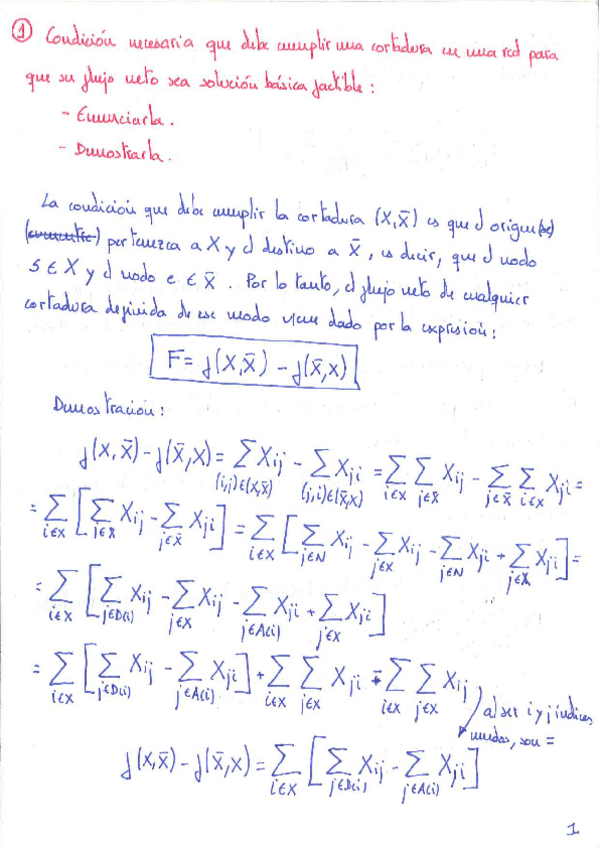 ① Condición necesaria que debe cumplir una cortadura en una red para
que su flujo neto sea solución básica factible:
- Enunciarla.
- Demostrarla.
La condición que debe cumplir la cortadura (X,X̄) es que el origen
pertenezca a X y el destino a X̄, es decir, que el nodo
s ∈ X y el nodo e ∈ X̄. Por lo tanto, el flujo neto de cualquier
cortadura definida de ese modo viene dado por la expresión:
F = f(X,X̄) - f(X̄,X)
Demostración:
f(X,X̄) - f(X̄,X) = ∑_{(i,j)∈(X,X̄)} X_ij - ∑_{(j,i)∈(X̄,X)} X_ji = ∑_{i∈X} ∑_{j∈X̄} X_ij - ∑_{j∈X̄} ∑_{i∈X} X_ji =
= ∑_{i∈X} [∑_{j∈X̄} X_ij - ∑_{j∈X̄} X_ji] = ∑_{i∈X} [∑_{j∈N} X_ij - ∑_{j∈X} X_ij - ∑_{j∈N} X_ji + ∑_{j∈X} X_ji] =
= ∑_{i∈X} [∑_{j∈D(i)} X_ij - ∑_{j∈X} X_ij - ∑_{j∈A(i)} X_ji + ∑_{j∈X} X_ji]
= ∑_{i∈X} [∑_{j∈D(i)} X_ij - ∑_{j∈A(i)} X_ji] + ∑_{i∈X} ∑_{j∈X} X_ji - ∑_{i∈X} ∑_{j∈X} X_ij
al ser i y j índices
mudos, son =
f(X,X̄) - f(X̄,X) = ∑_{i∈X} [∑_{j∈D(i)} X_ij - ∑_{j∈A(i)} X_ji]
1